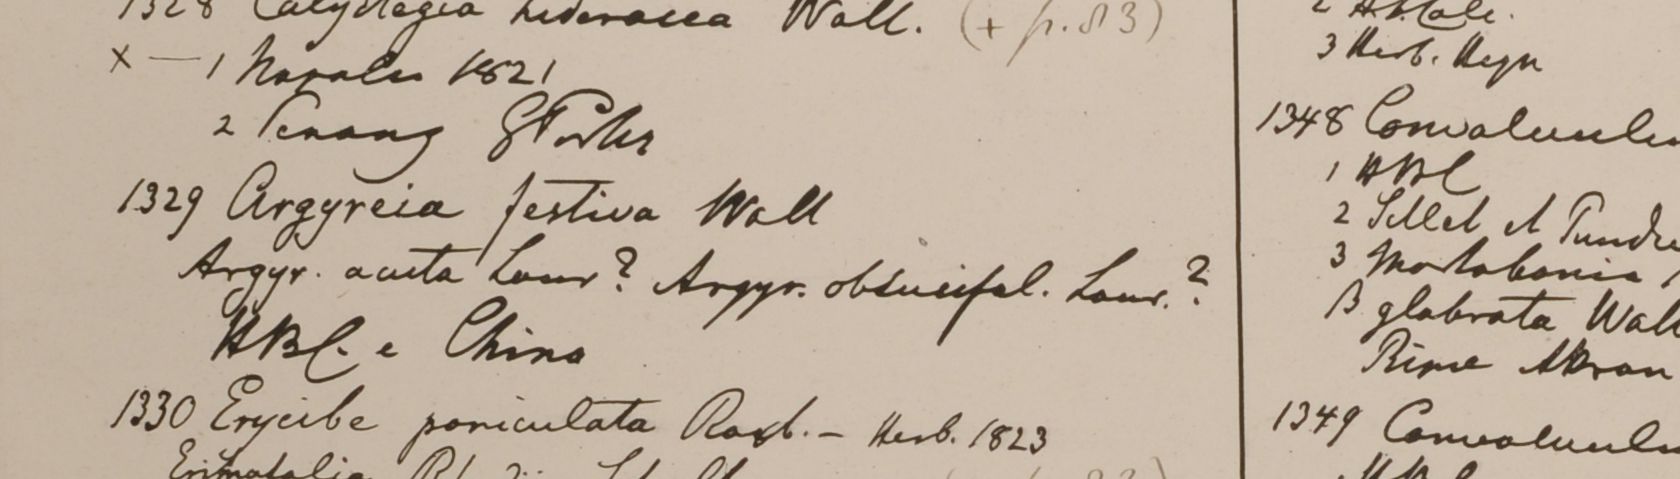 1328 Calystegia hederacea Wall. (+ p. 83)
× — 1 Napalia 1821
2 Penang G Porter
1329 Argyreia festiva Wall
Argyr. acuta Lour? Argyr. obtusifol. Lour.?
HBC. e China
1330 Erycibe paniculata Roxb. – Herb. 1823
2 HBCalc.
3 Herb. Heyn
1348 Convolvulu
1 HBC
2 Sillet et Pundu
3 Martabania
β glabrata Wall
Ripae
1349 Convolvulu